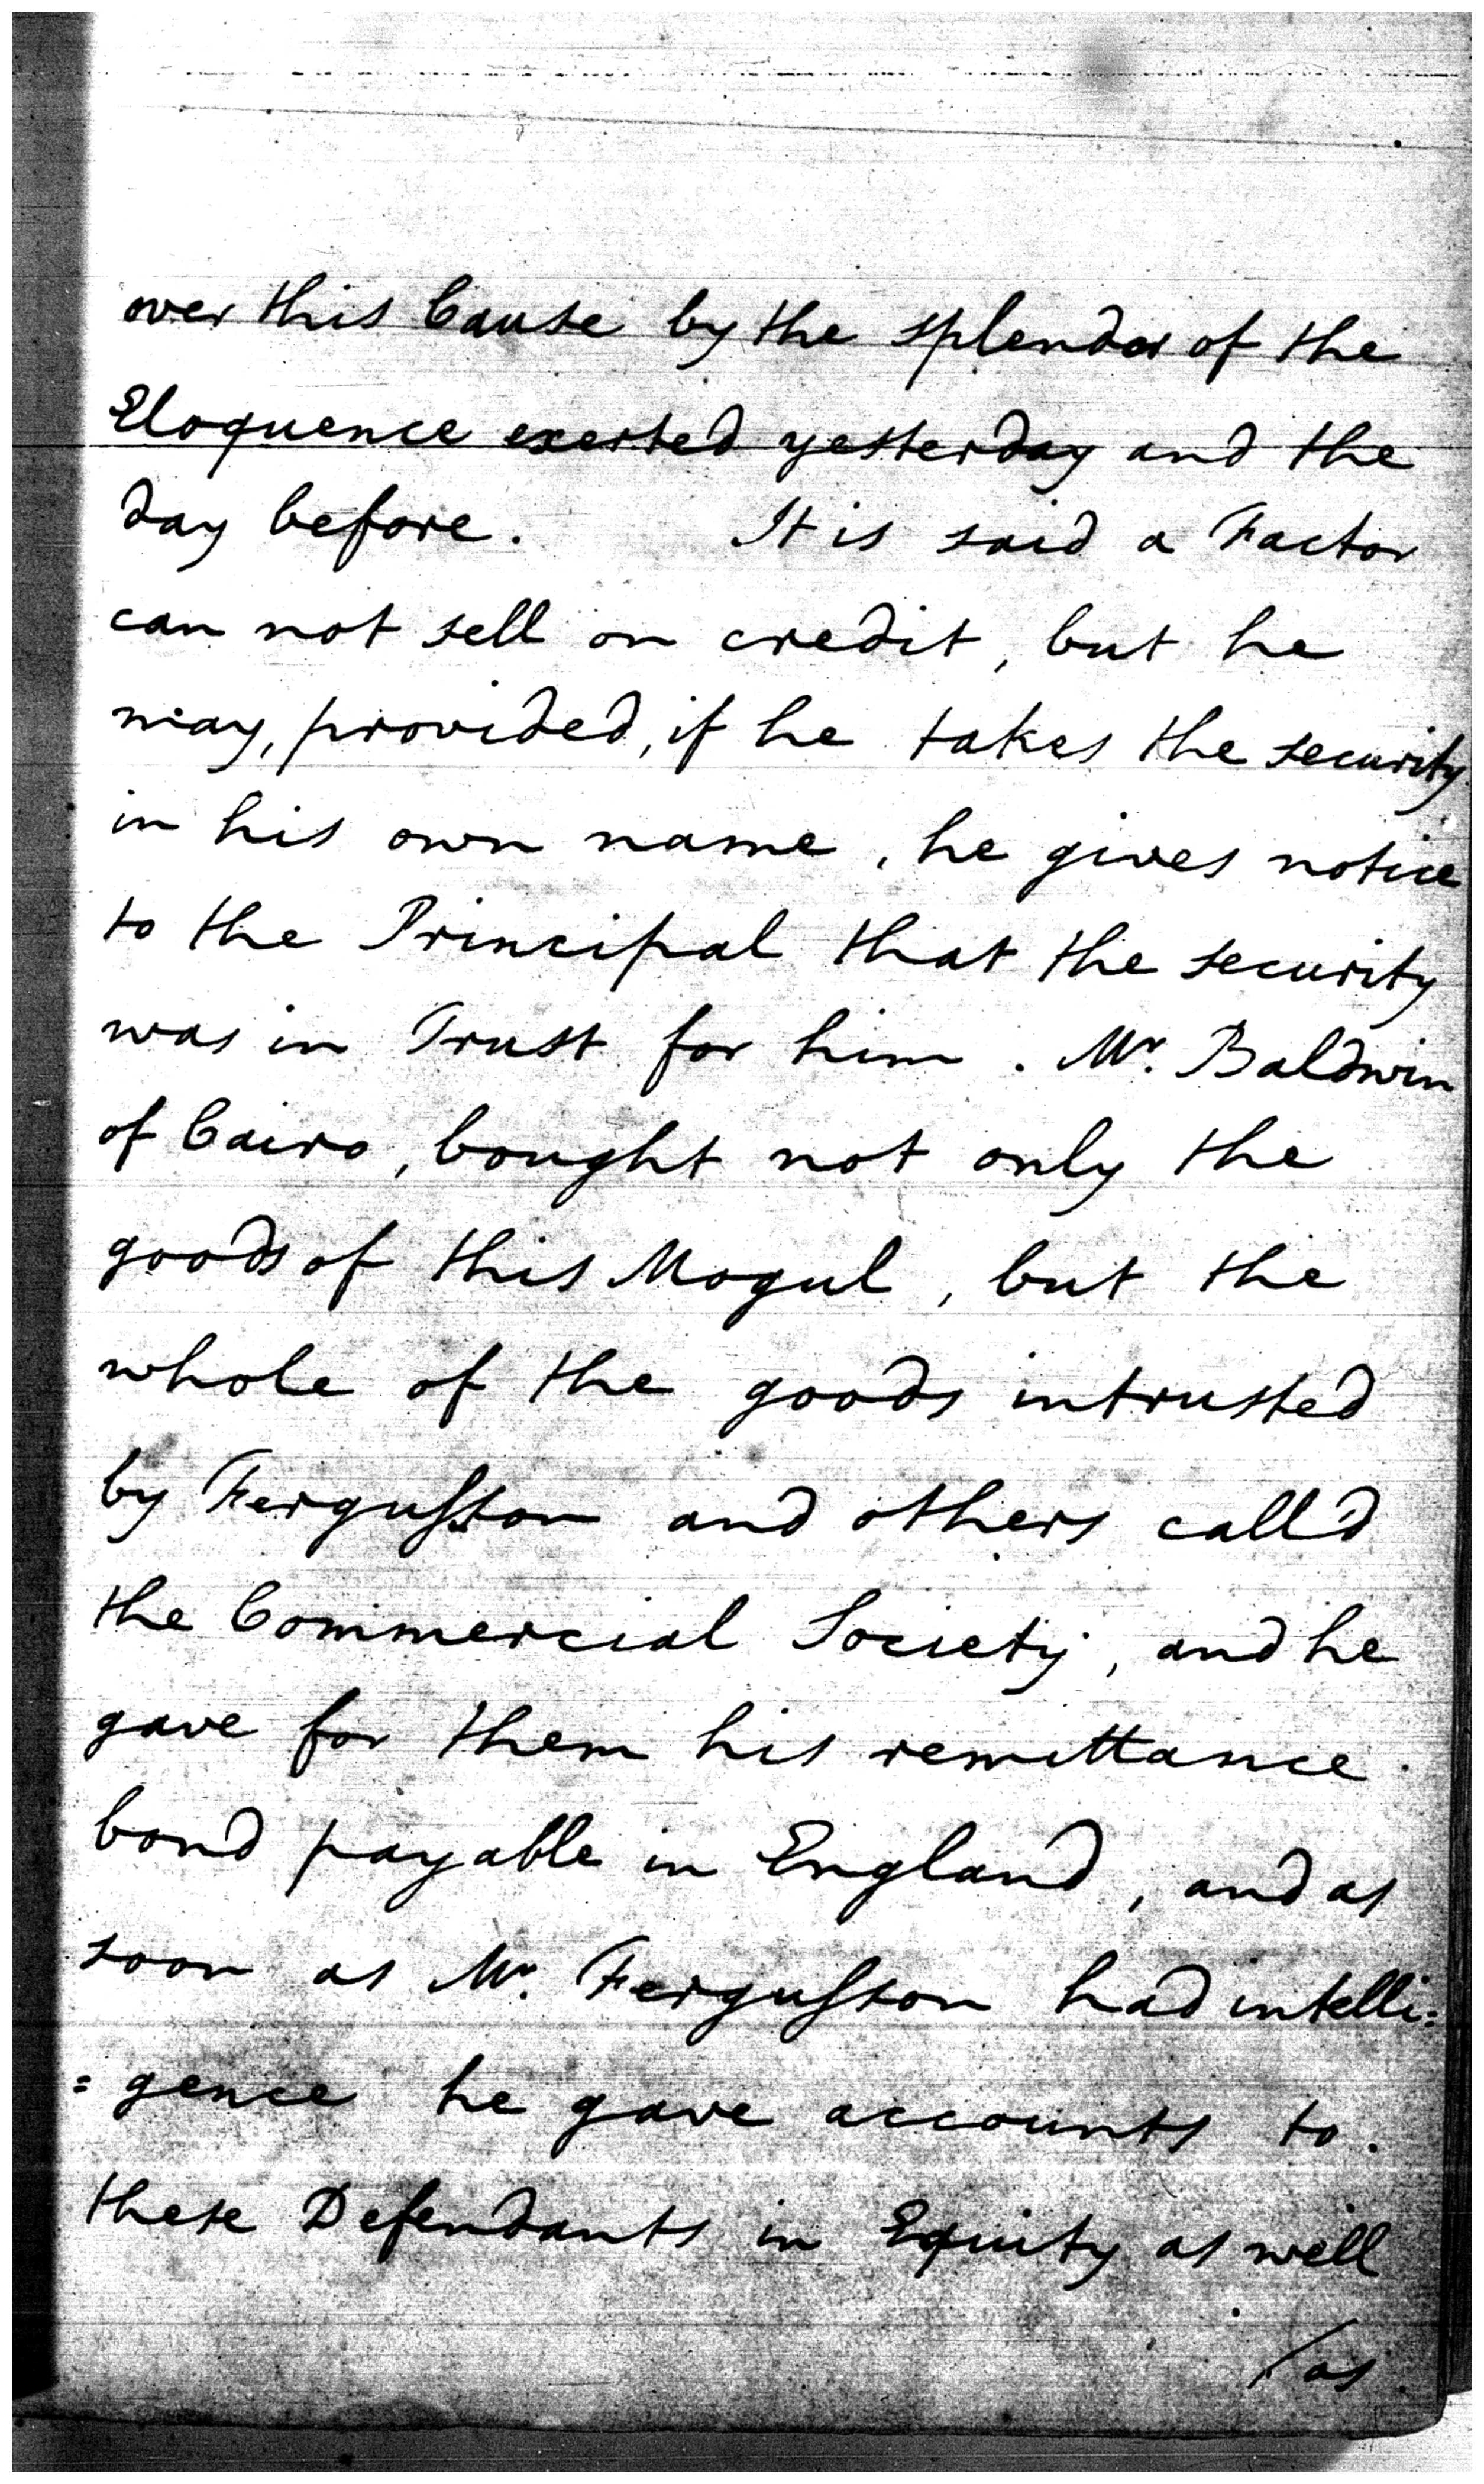 over this Cause by the splendor of the
Eloquence exerted yesterday and the
day before. It is said a Factor
can not sell on credit, but he
may, provided, if he takes the security
in his own name, he gives notice
to the Principal that the security
was in Trust for him. Mr. Baldwin
of Cairo, bought not only the
goods of this Mogul, but the
whole of the goods intrusted
by Ferguſson and others call'd
the Commercial Society, and he
gave for them his remittance
bond payable in England, and as
soon as Mr. Ferguſson had intelli:
:gence he gave accounts to
these Defendants in Equity as well
/as